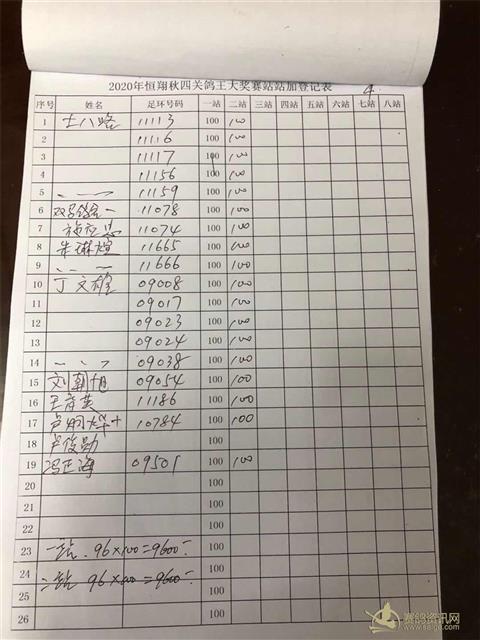 2020年恒翔秋四关鸽王大奖赛站站加登记表 4
序号 姓名 足环号码 一站 二站 三站 四站 五站 六站 七站 八站
1 士八路 11113 100 100
2 11116 100 100
3 11117 100 100
4 11156 100 100
5 11159 100 100
6 11078 100 100
7 11074 100 100
8 朱琳煊 11665 100 100
9 11666 100 100
10 丁文雄 09008 100 100
11 09017 100 100
12 09023 100 100
13 09024 100 100
14 09038 100 100
15 刘朝旭 09054 100 100
16 11186 100 100
17 10784 100 100
18 卢俊勋 100
19 冯正海 09501 100 100
20 100
21 100
22 100
23 一站. 96×100=9600 100
24 二站 96×100=9600 100
25 100
26 100
赛鸽资讯网
www.saige.com